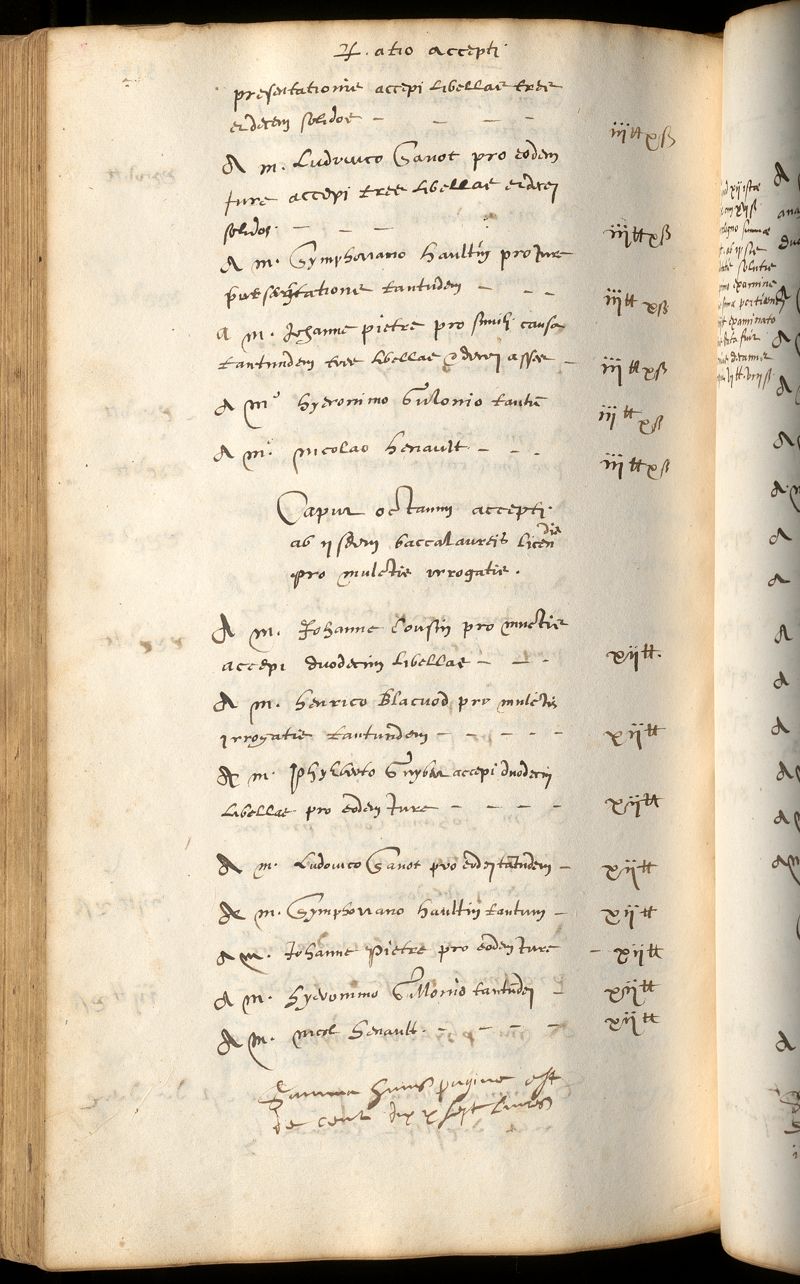 Ratio accepti
presentationis accepi libellas tres
et decem solidos – – – – iii tt xß
A m. Ludovico Savot pro eodem
jure accepi tres libellas et decem
solidos. – – – iii tt xß
A m. Symphoriano Haultin pro jure
presentatione tantudem – – – iii tt xß
A m. Johanne pietre pro simili causa
tantundem tres libellas & decem asses – iii tt xß
A m. hyeronimo Guionio tantū iii tt xß
A m. nicolao henault – – – iii tt xß
Caput octauum accepti
ab iisdem baccalaureis licendis
pro mulctis irrogatis.
A m. Johanne Cousin pro mulctis
accepi duodecim libellas – – – xii tt.
A m. henrico Blacuod pro mulctis
irrogatis tantundem – – – – – xii tt
A m. Phylberto Guybert accepi duodecim
libellas pro eodem jure – – – – xii tt
A m. Ludovico Savot pro eodem tātundem – xii tt
A m. Symphoriano haultin tantum – xii tt
A m. Johanne Pietre pro eodem jure – xii tt
A m. hyeronimo Guionio tantūdem – xii tt
A m. nicol henault. – – – – xii tt
Summa huius pagine est
de cent dix & sept livres